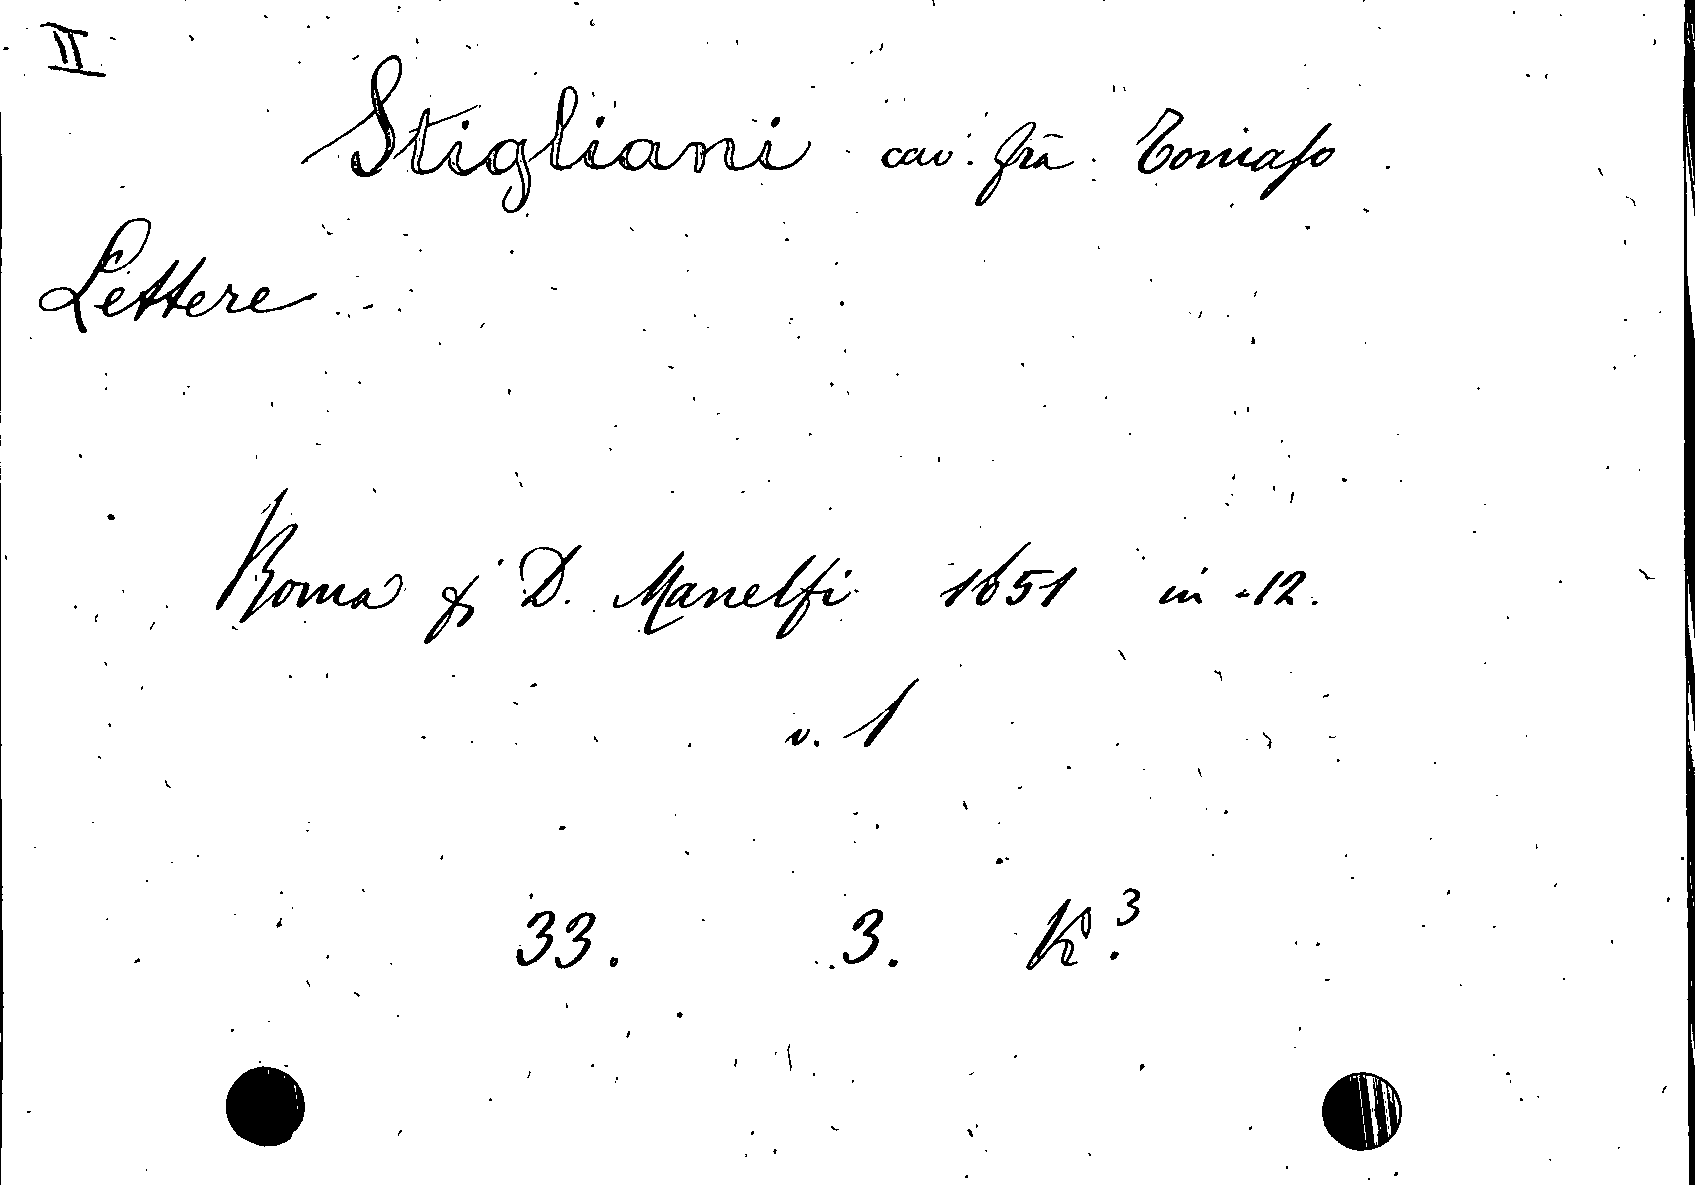 II
Stigliani cav. frà Tomaso
Lettere
Roma p D. Manelfi 1651 in-12.
v. 1
33. 3. K.³